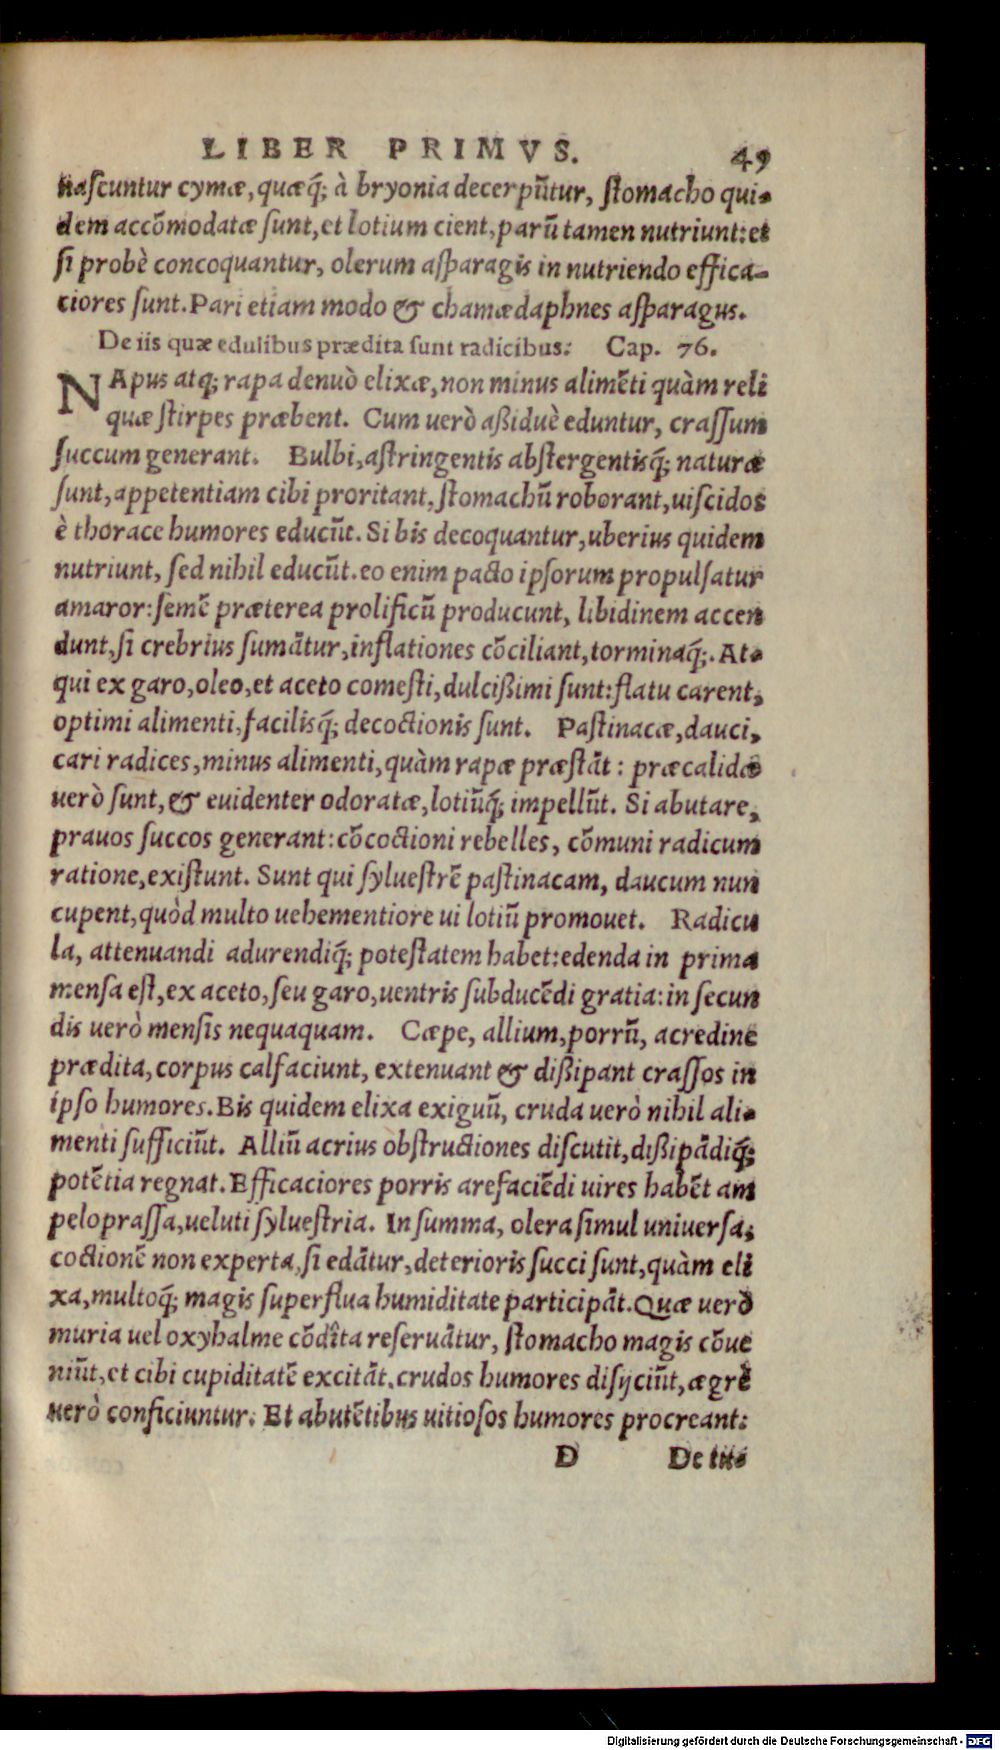 LIBER PRIMVS. 49
nascuntur cymæ, quæq́; à bryonia decerpũtur, stomacho qui-
dem accõmodatæ sunt, et lotium cient, parũ tamen nutriunt: et
si probè concoquantur, olerum asparagis in nutriendo effica-
ciores sunt. Pari etiam modo & chamædaphnes asparagus.
De iis quæ edulibus prædita sunt radicibus: Cap. 76.
NApus atq; rapa denuò elixæ, non minus alimẽti quàm reli
quæ stirpes præbent. Cum uerò aßiduè eduntur, crassum
succum generant. Bulbi, astringentis abstergentisq́; naturæ
sunt, appetentiam cibi proritant, stomachũ roborant, uiscidos
è thorace humores educũt. Si bis decoquantur, uberius quidem
nutriunt, sed nihil educũt. eo enim pacto ipsorum propulsatur
amaror: semẽ præterea prolificũ producunt, libidinem accen
dunt, si crebrius sumãtur, inflationes cõciliant, torminaq́;. At-
qui ex garo, oleo, et aceto comesti, dulcißimi sunt: flatu carent,
optimi alimenti, facilisq́; decoctionis sunt. Pastinacæ, dauci,
cari radices, minus alimenti, quàm rapæ præstãt: præcalidæ
uerò sunt, & euidenter odoratæ, lotiũq́; impellũt. Si abutare,
prauos succos generant: cõcoctioni rebelles, cõmuni radicum
ratione, existunt. Sunt qui syluestrẽ pastinacam, daucum nun
cupent, quòd multo uehementiore ui lotiũ promouet. Radicu
la, attenuandi adurendiq́; potestatem habet: edenda in prima
mensa est, ex aceto, seu garo, uentris subducẽdi gratia: in secun
dis uerò mensis nequaquam. Cæpe, allium, porrũ, acredine
prædita, corpus calfaciunt, extenuant & dißipant crassos in
ipso humores. Bis quidem elixa exiguũ, cruda uerò nihil ali-
menti sufficiũt. Alliũ acrius obstructiones discutit, dißipãdiq́;
potẽtia regnat. Efficaciores porris arefaciẽdi uires habẽt am
peloprassa, ueluti syluestria. In summa, olera simul uniuersa,
coctionẽ non experta, si edãtur, deterioris succi sunt, quàm eli
xa, multoq́; magis superflua humiditate participãt. Quæ uerò
muria uel oxyhalme cõdîta reseruãtur, stomacho magis cõue
niũt, et cibi cupiditatẽ excitãt. crudos humores disijciũt, ægrè
uerò conficiuntur. Et abutẽtibus uitiosos humores procreant:
D De iis
Digitalisierung gefördert durch die Deutsche Forschungsgemeinschaft - DFG